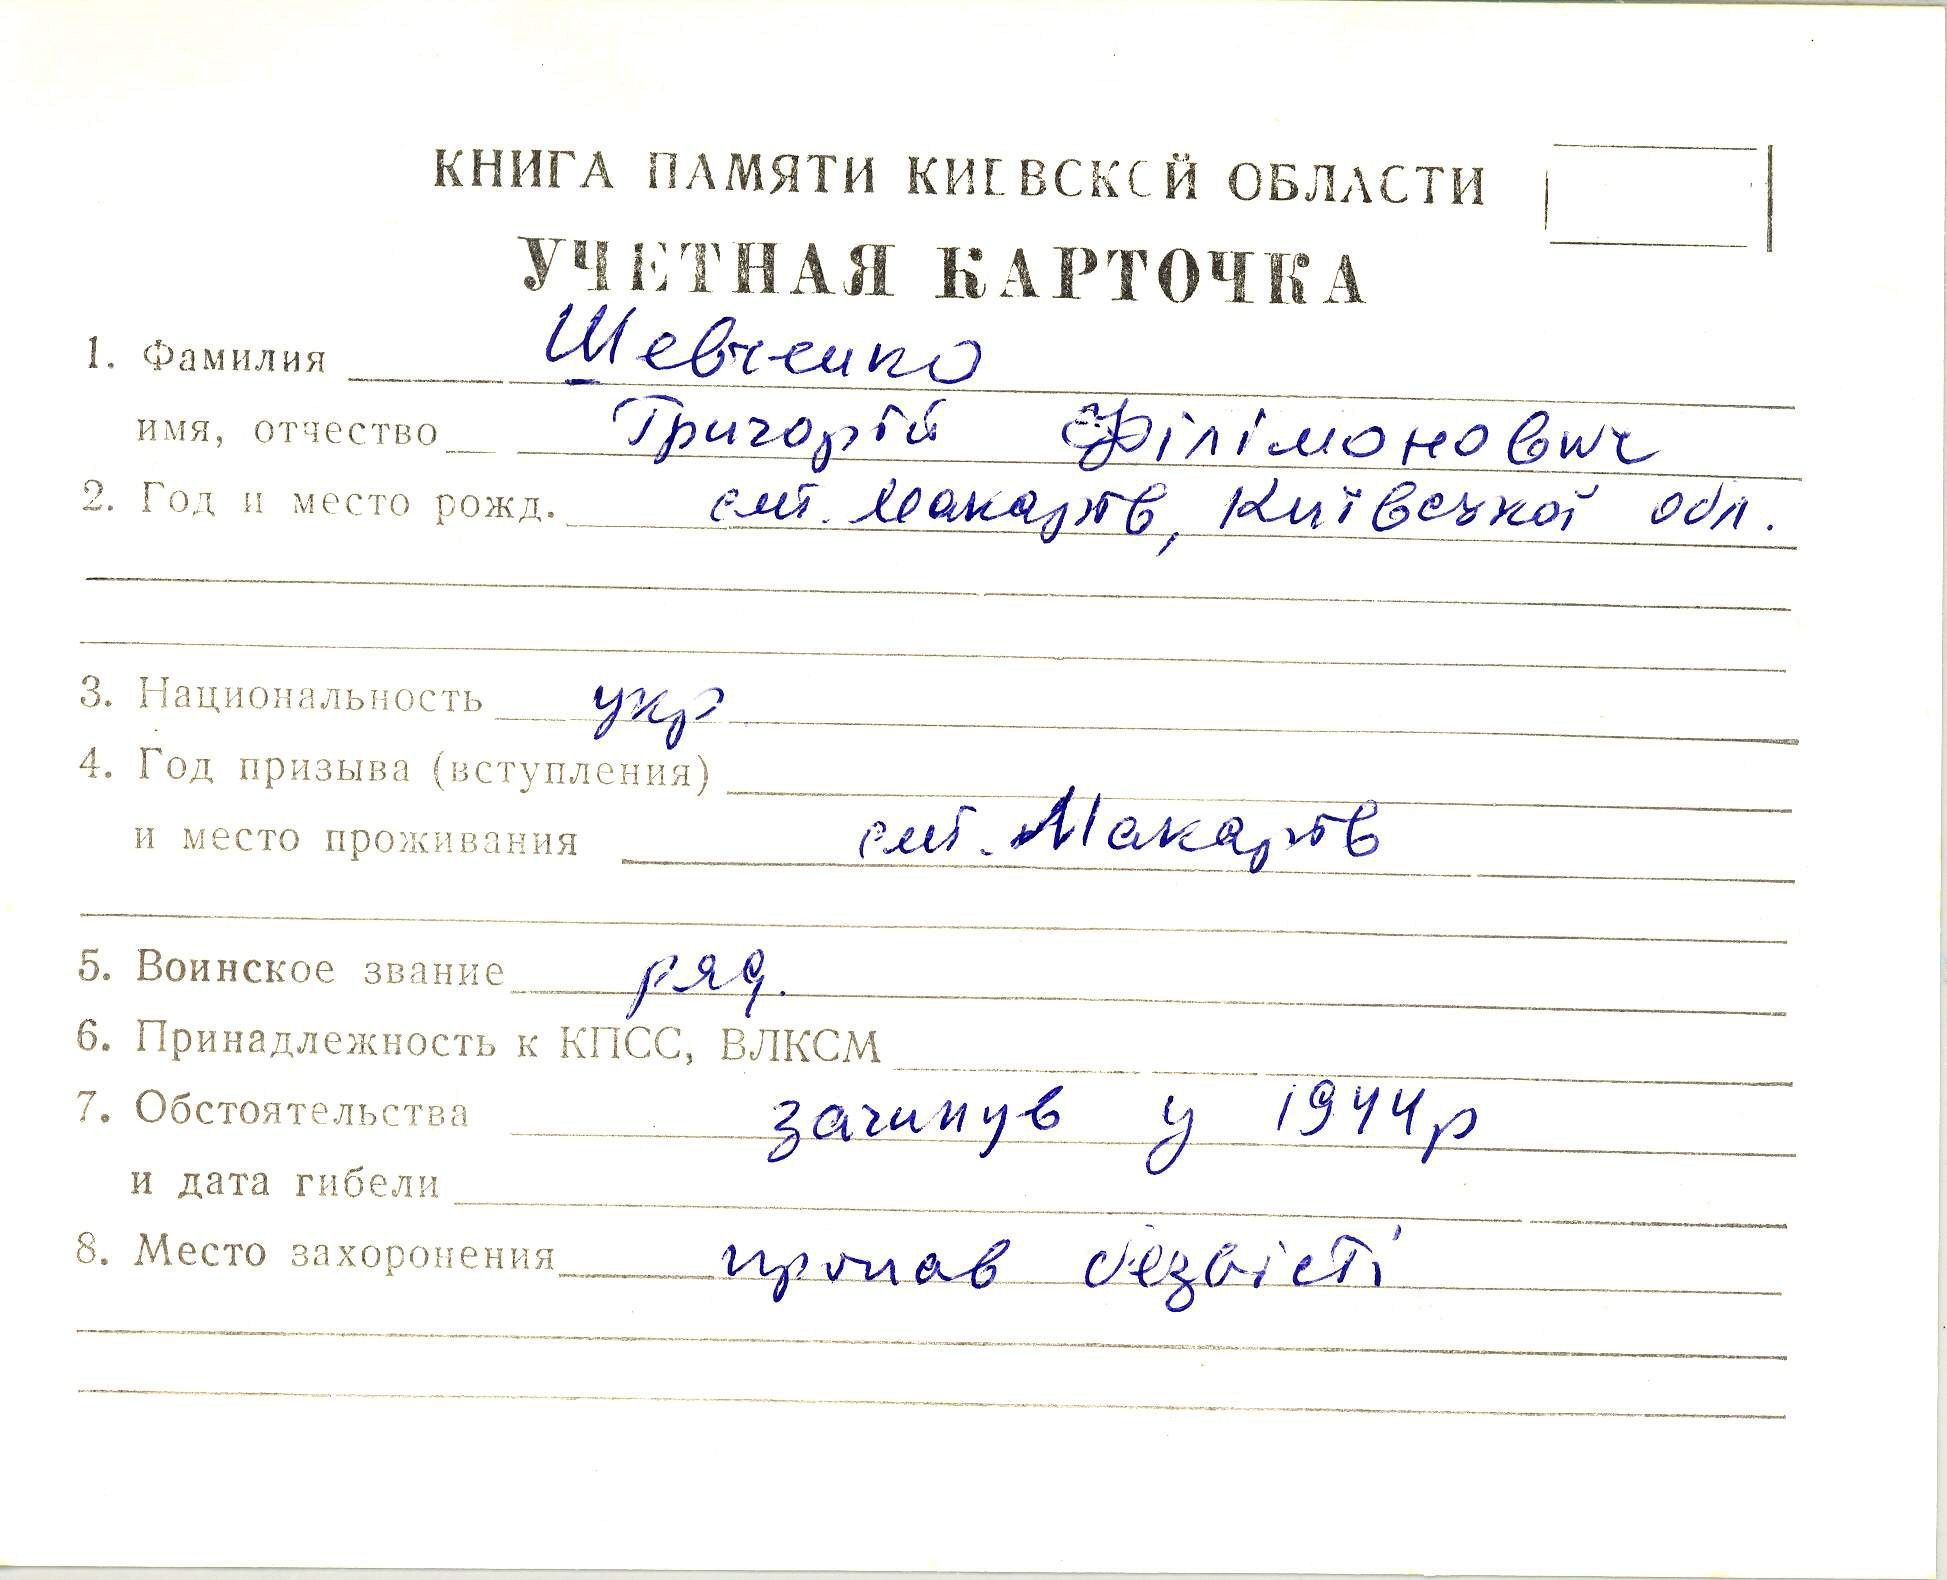 КНИГА ПАМЯТИ КИЕВСКОЙ ОБЛАСТИ
УЧЕТНАЯ КАРТОЧКА
1. Фамилия Шевченко
имя, отчество Григорій Філімонович
2. Год и место рожд. смт. Макарів, Київської обл.
3. Национальность укр
4. Год призыва (вступления)
и место проживания смт. Макарів
5. Воинское звание ряд.
6. Принадлежность к КПСС, ВЛКСМ
7. Обстоятельства загинув у 1944р
и дата гибели
8. Место захоронения пропав безвісті